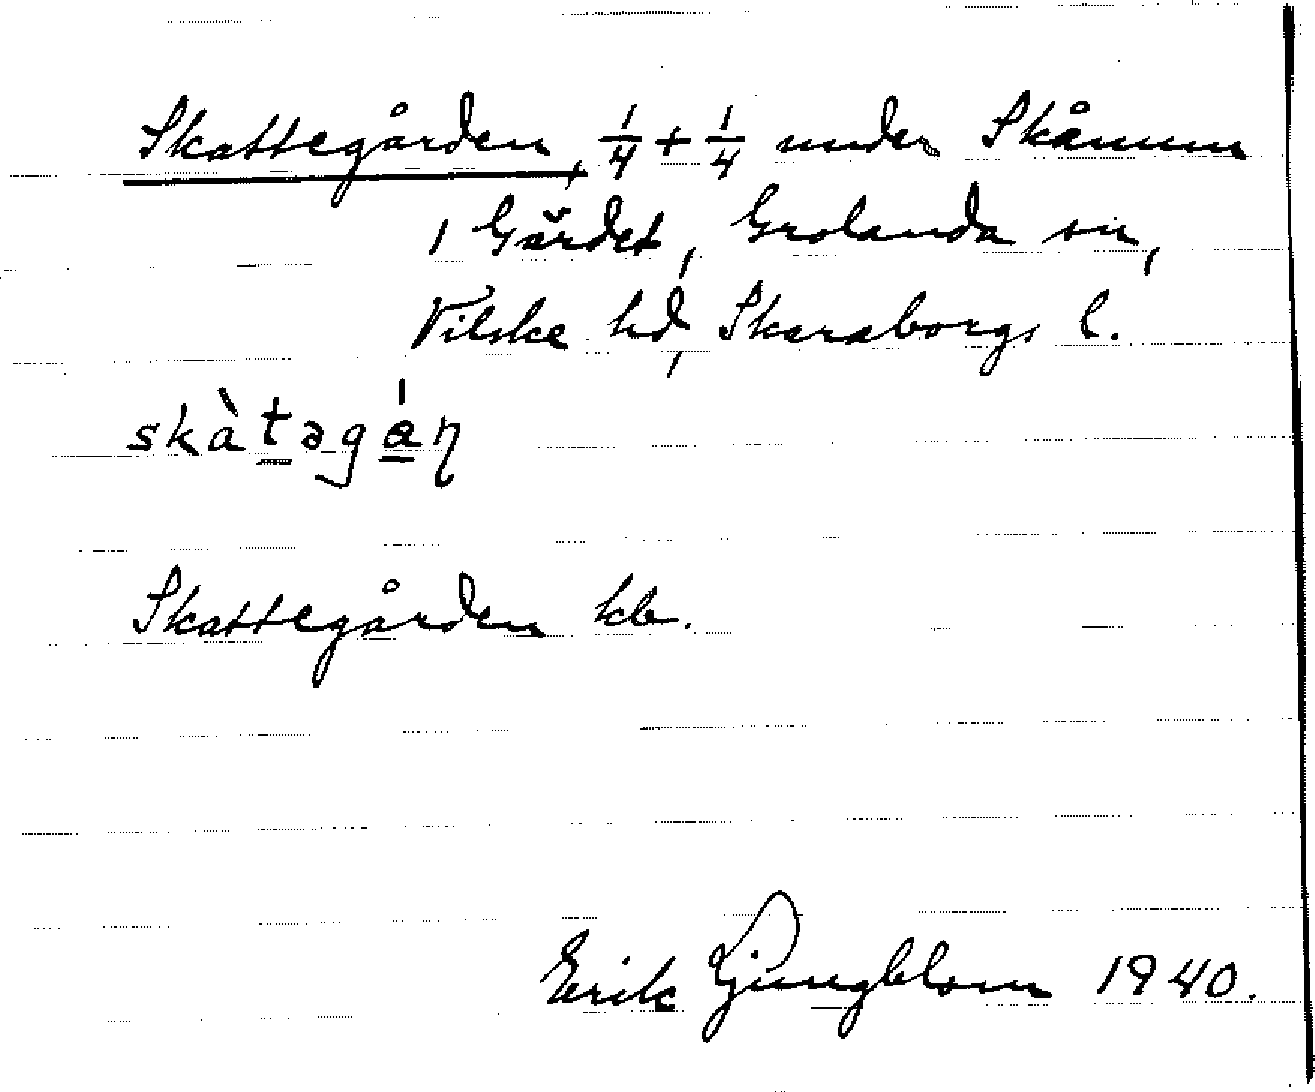 Skattegården, 1/4 + 1/4 under Skånum
1 Gärdet, Grolanda sn,
Vilske hd, Skaraborgs l.
skàtəgáɳ
Skattegården kb.
Erik Ljungblom 1940.